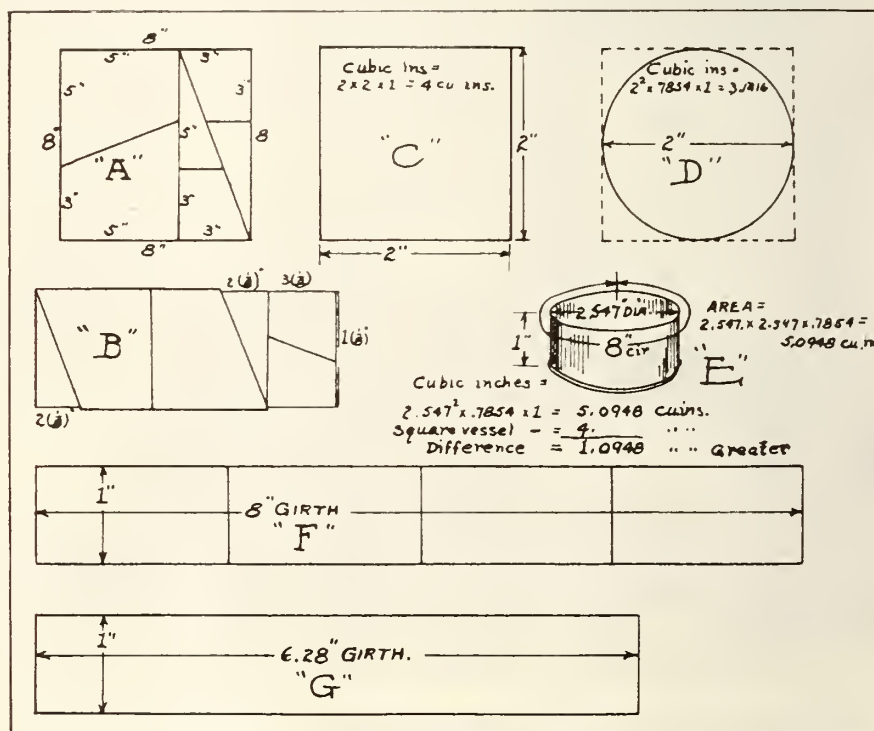 8"
5" 3"
5" 3"
8" "A" 5" 8
3" 3"
5" 3"
8"
Cubic ins =
2 × 2 × 1 = 4 cu ins.
"C"
2"
2"
Cubic ins =
2² × .7854 × 1 = 3.1416
2"
"D"
"B"
2 3
1
2
2.547" DIA
1"
8" cir
"E"
AREA =
2.547. × 2.547 × .7854 =
5.0948 cu.in
Cubic inches =
2.547² × .7854 × 1 = 5.0948 cu ins.
Square vessel - = 4. " "
Difference = 1.0948 " " Greater
1"
8" GIRTH
"F"
1"
6.28" GIRTH.
"G"